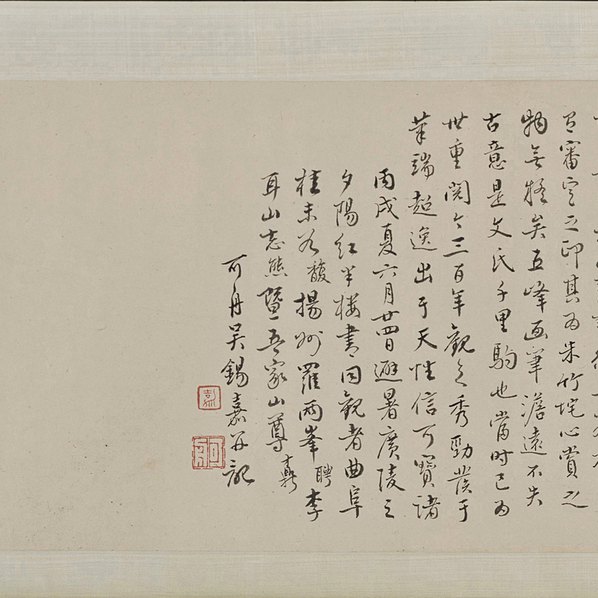 審定之印其為朱竹垞心賞之
物無疑矣五峰畫筆澹遠不失
古意是文氏千里駒也當時已為
世重閱今三百年觀之秀勁發于
筆端超逸出于天性信可寶諸
丙戌夏六月廿四日避暑廣陵之
夕陽紅半樓書同觀者曲阜
桂未谷馥揚州羅兩峯聘李
耳山志熊暨吾家山尊鼒
可舟吳錫嘉并記